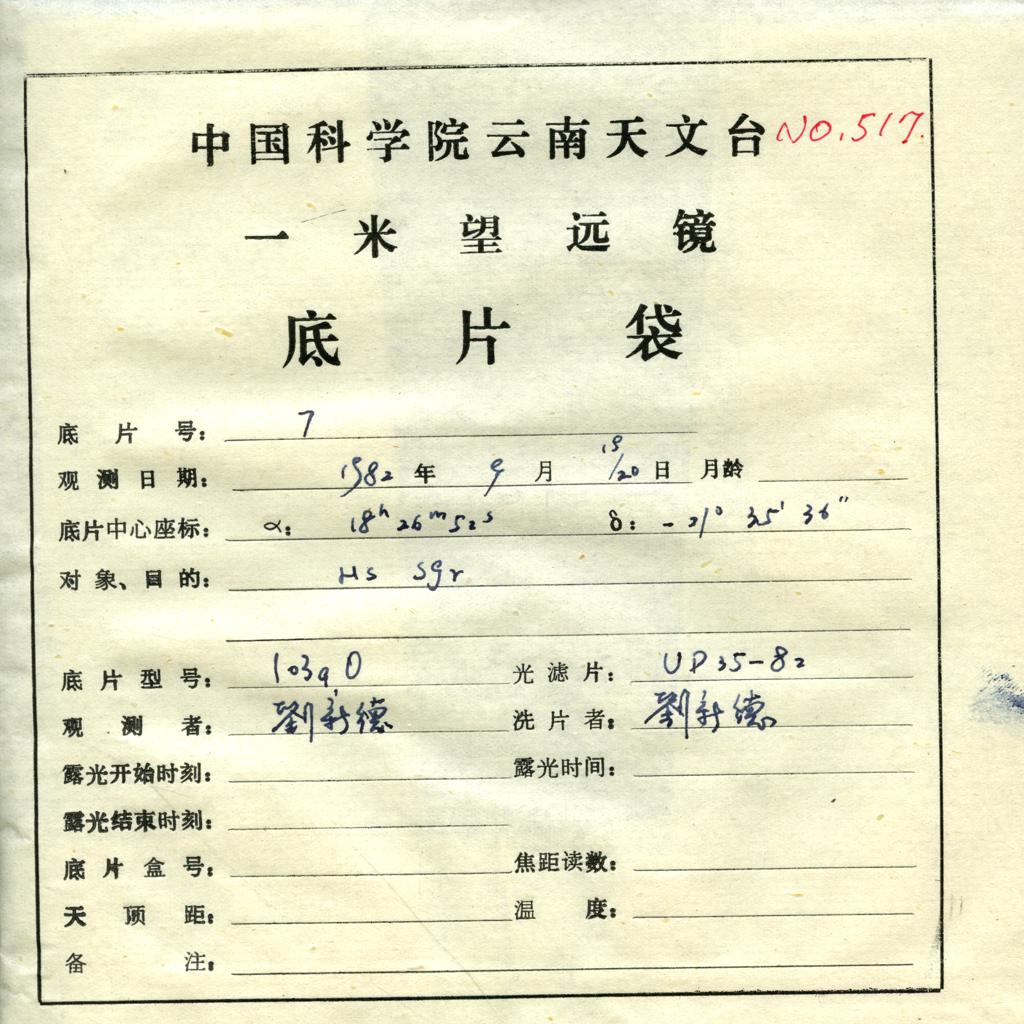 中国科学院云南天文台 NO.517.
一米望远镜
底片袋
底片号: 7
观测日期: 1982 年 9 月 19/20 日 月龄
底片中心座标: α: 18h 26m 52s δ: -21° 35' 36"
对象、目的: HS Sgr
底片型号: 103aO 光滤片:
观测者: 劉新德 洗片者: 劉新德
露光开始时刻: 露光时间:
露光结束时刻:
底片盒号: 焦距读数:
天顶距: 温度:
备注: